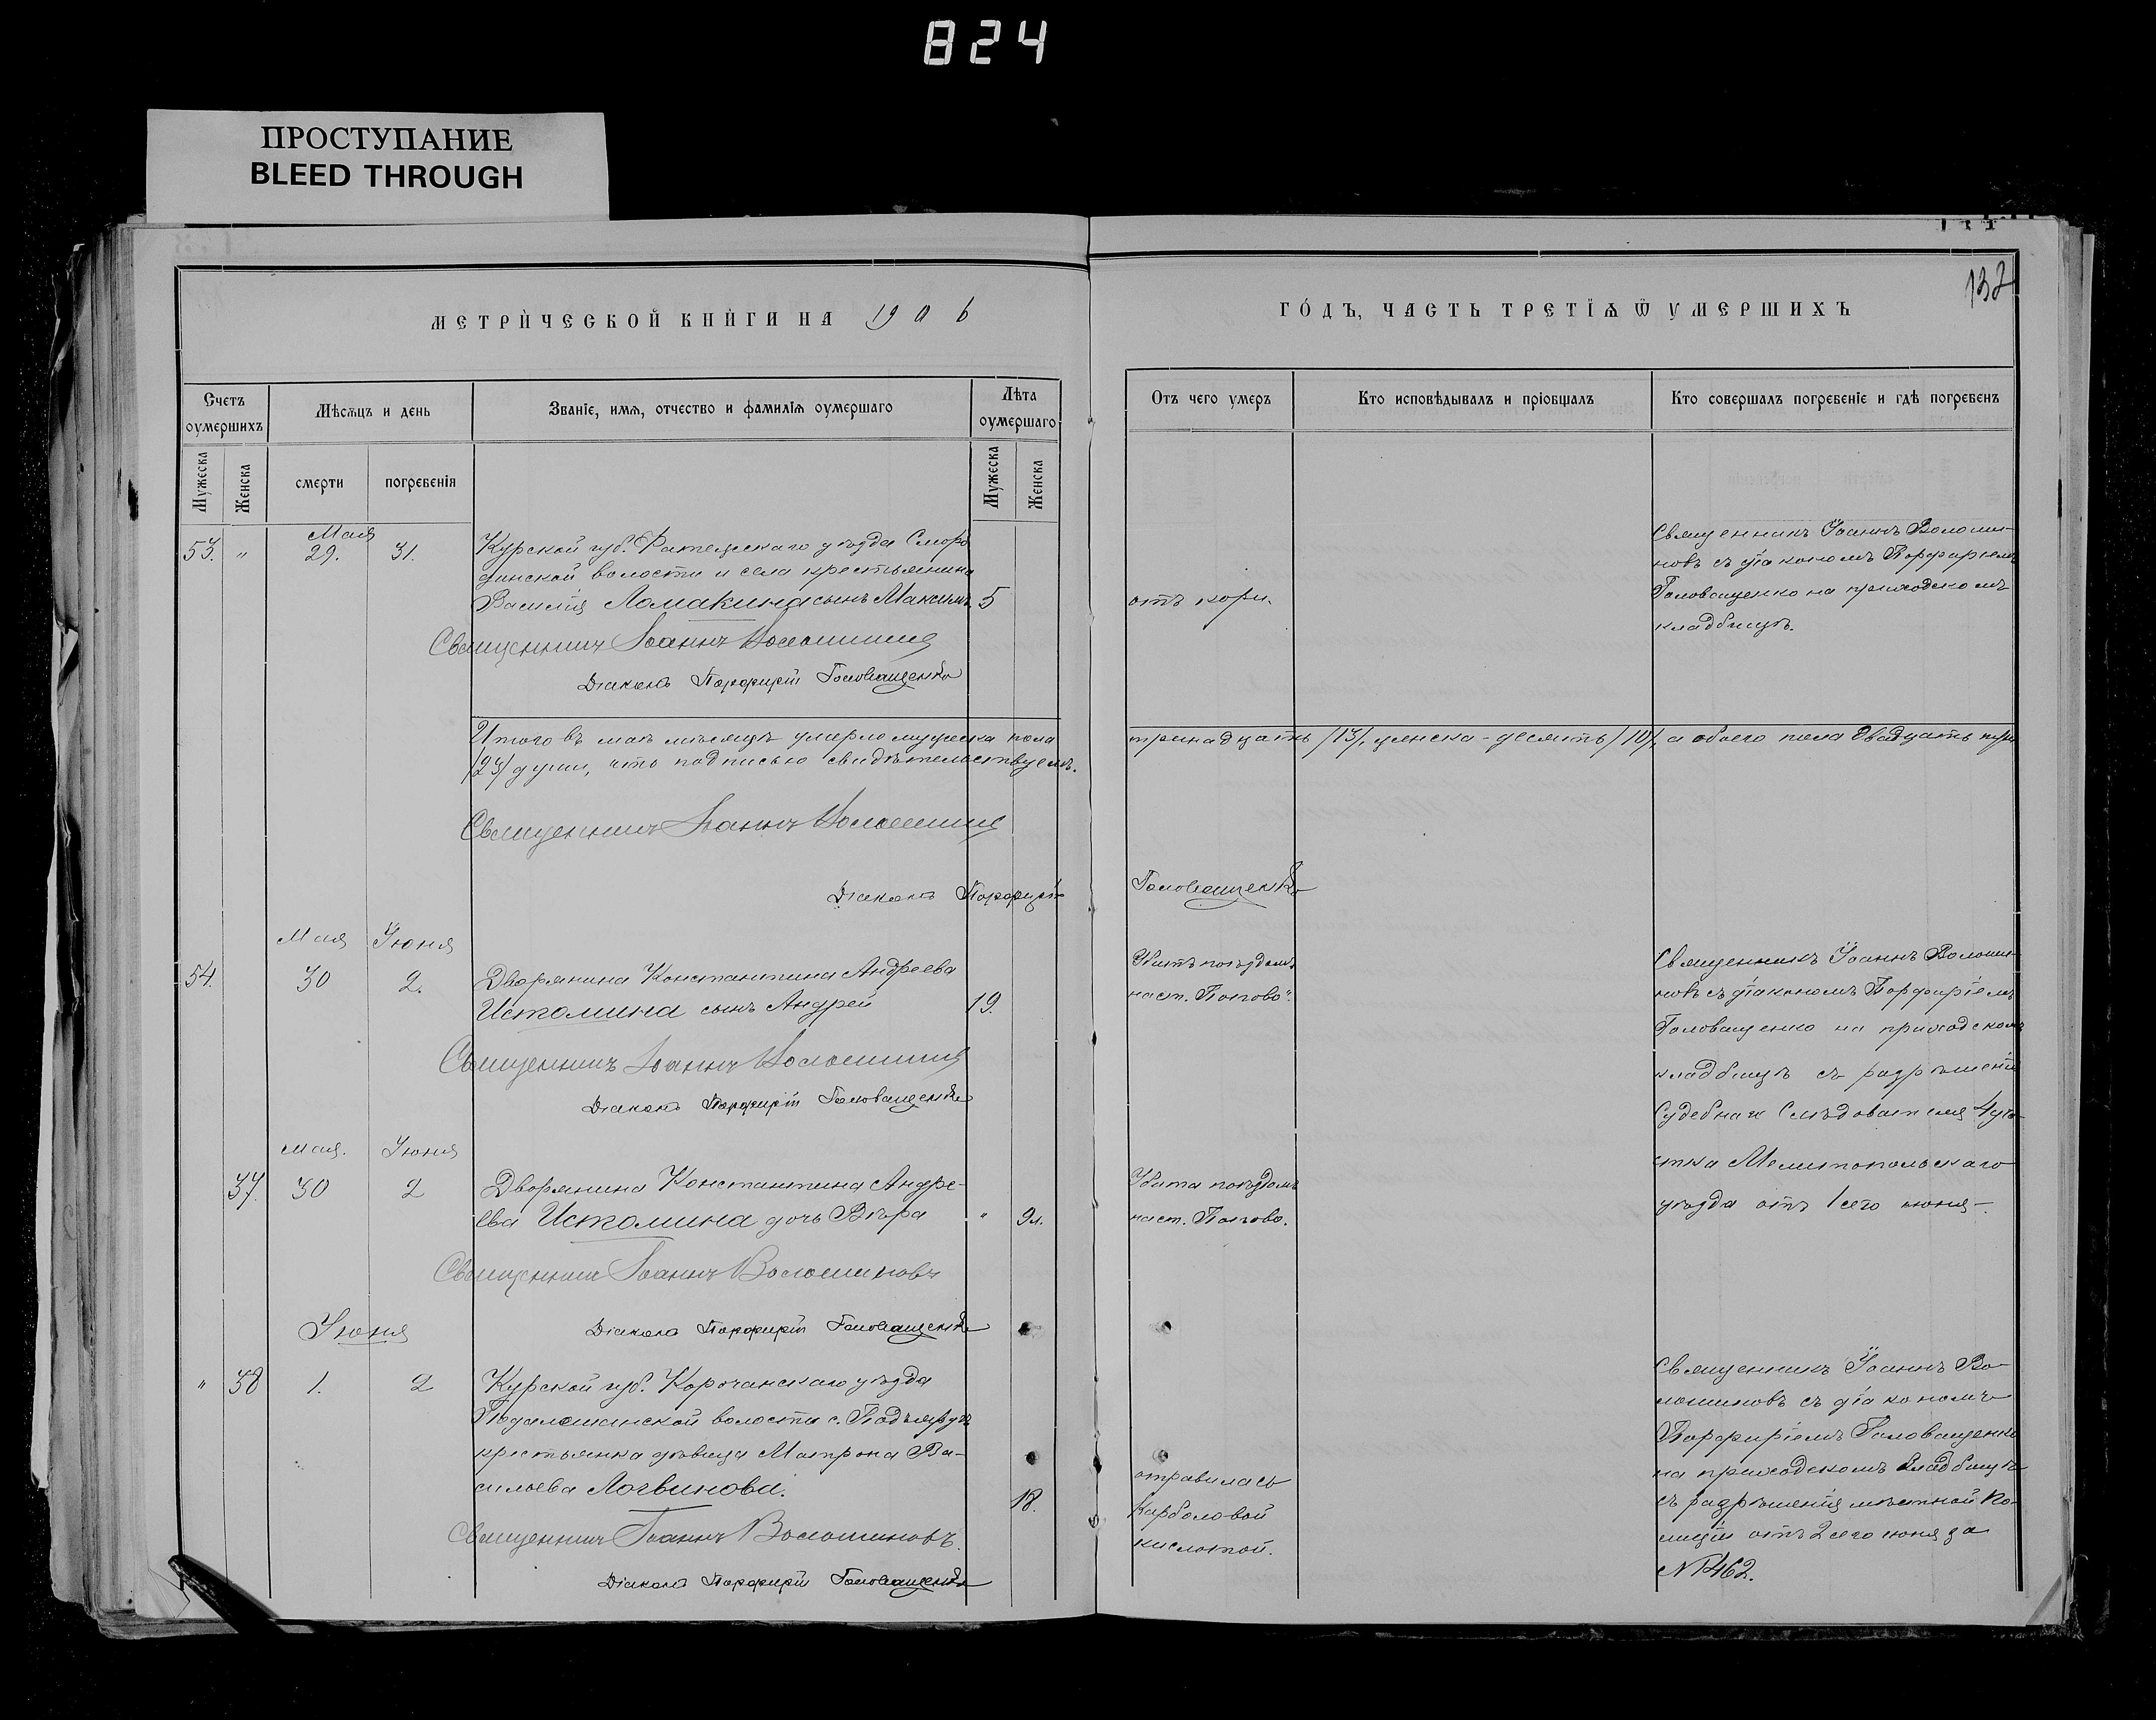 824
ПРОСТУПАНИЕ
BLEED THROUGH
МЕТРИЧЕСКОЙ КНИГИ НА 1906
ГОДЪ, ЧАСТЬ ТРЕТІѦ Ѿ УМЕРШИХЪ
132
Счетъ оумершихъ
Мѣсѧцъ и день
Званіе, имѧ, отчество и фамиліѧ оумершаго
Лѣта оумершаго
Отъ чего умеръ
Кто исповѣдывалъ и пріобщалъ
Кто совершалъ погребеніе и гдѣ погребенъ
Мужеска
Женска
смерти
погребенія
Мужеска
Женска
Мая
53. " 29. 31.
Курской губ. Фатежскаго уѣзда Сморо
динской волости и села крестьянина
Василія Ломакина сынъ Максимъ 5
отъ кори.
Священникъ Іоаннъ Волоши-
новъ съ діакономъ Порфиріемъ
Головащенко на приходскомъ
кладбищѣ.
Священникъ Іоаннъ Волошиновъ
Діаконъ Порфирій Головащенко
Итого въ маѣ мѣсяцѣ умерло мужеска пола тринадцать /13/, женска - десять /10/, а обоего пола двадцать три
/23/ души, что подписью свидѣтельствуемъ.
Священникъ Іоаннъ Волошиновъ
Діаконъ Порфирій Головащенко
Мая Іюня
54. 30 2.
Дворянина Константина Андреева
Истомина сынъ Андрей 19.
Убитъ поѣздомъ
на ст. "Попово".
Священникъ Іоаннъ Волоши-
новъ съ діакономъ Порфиріемъ
Головащенко на приходскомъ
кладбищѣ съ разрѣшенія
Судебнаго Слѣдователя 4 уча-
стка Мелитопольскаго
уѣзда отъ 1 сего іюня.
Священникъ Іоаннъ Волошиновъ
Діаконъ Порфирій Головащенко
мая. Іюня
37. 30 2
Дворянина Константина Андре-
ева Истомина дочь Вѣра " 9л.
Убита поѣздомъ
на ст. Попово.
Священникъ Іоаннъ Волошиновъ
Діаконъ Порфирій Головащенко
Іюня
" 38 1. 2
Курской губ. Корочанскаго уѣзда
волости с.
крестьянка дѣвица Матрона Ва-
сильева Логвинова. 18.
отравилась
Карболовой
кислотой.
Священникъ Іоаннъ Во-
лошиновъ съ діакономъ
Порфиріемъ Головащенко
на приходскомъ кладбищѣ
съ разрѣшенія мѣстной По-
лиціи отъ 2 сего іюня за
№ 1462.
Священникъ Іоаннъ Волошиновъ.
Діаконъ Порфирій Головащенко